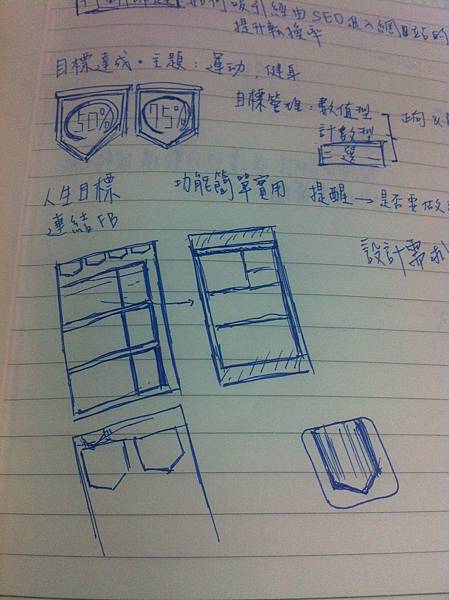 如何吸引經由SEO進入網站的
提升轉換率
目標達成・主題：運动、健身
50% 75%
目標管理：數值型
計數型
二選一
正向
人生目標
連結FB
功能簡單實用
提醒→是否要做
設計需求